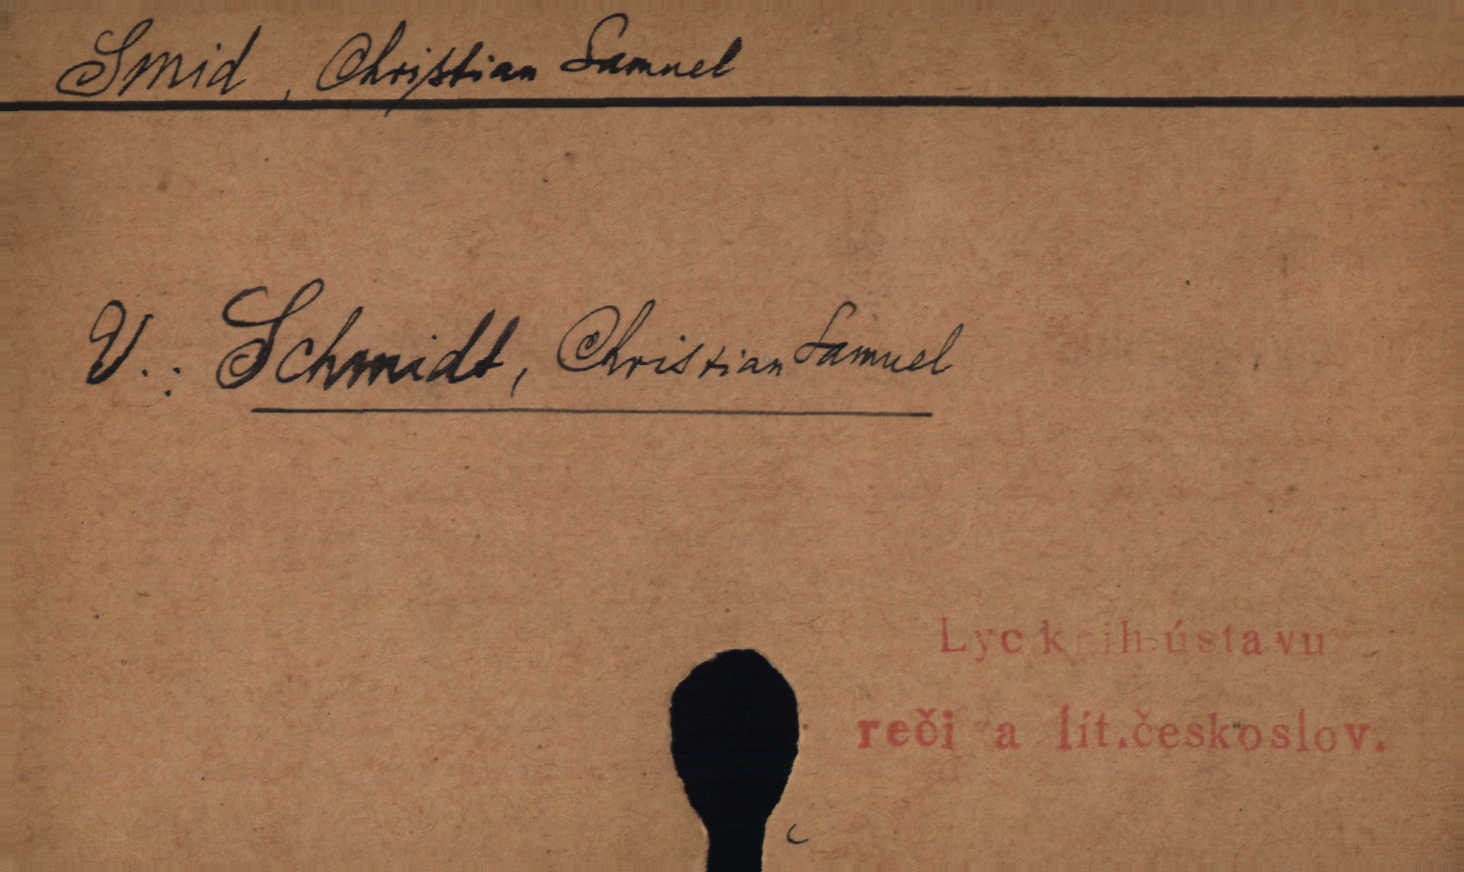 Smid, Christian Samuel
V.: Schmidt, Christian Samuel
Lyc ústavu
reči a lit.českoslov.